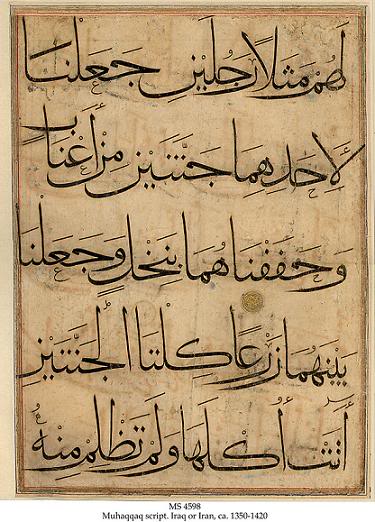 لَهُمْ مَثَلًا رَجُلَيْنِ جَعَلْنَا
لِأَحَدِهِمَا جَنَّتَيْنِ مِنْ أَعْنَابٍ
وَحَفَفْنَاهُمَا بِنَخْلٍ وَجَعَلْنَا
بَيْنَهُمَا زَرْعًا كِلْتَا الْجَنَّتَيْنِ
آتَتْ أُكُلَهَا وَلَمْ تَظْلِمْ مِنْهُ
MS 4598
Muhaqqaq script. Iraq or Iran, ca. 1350-1420